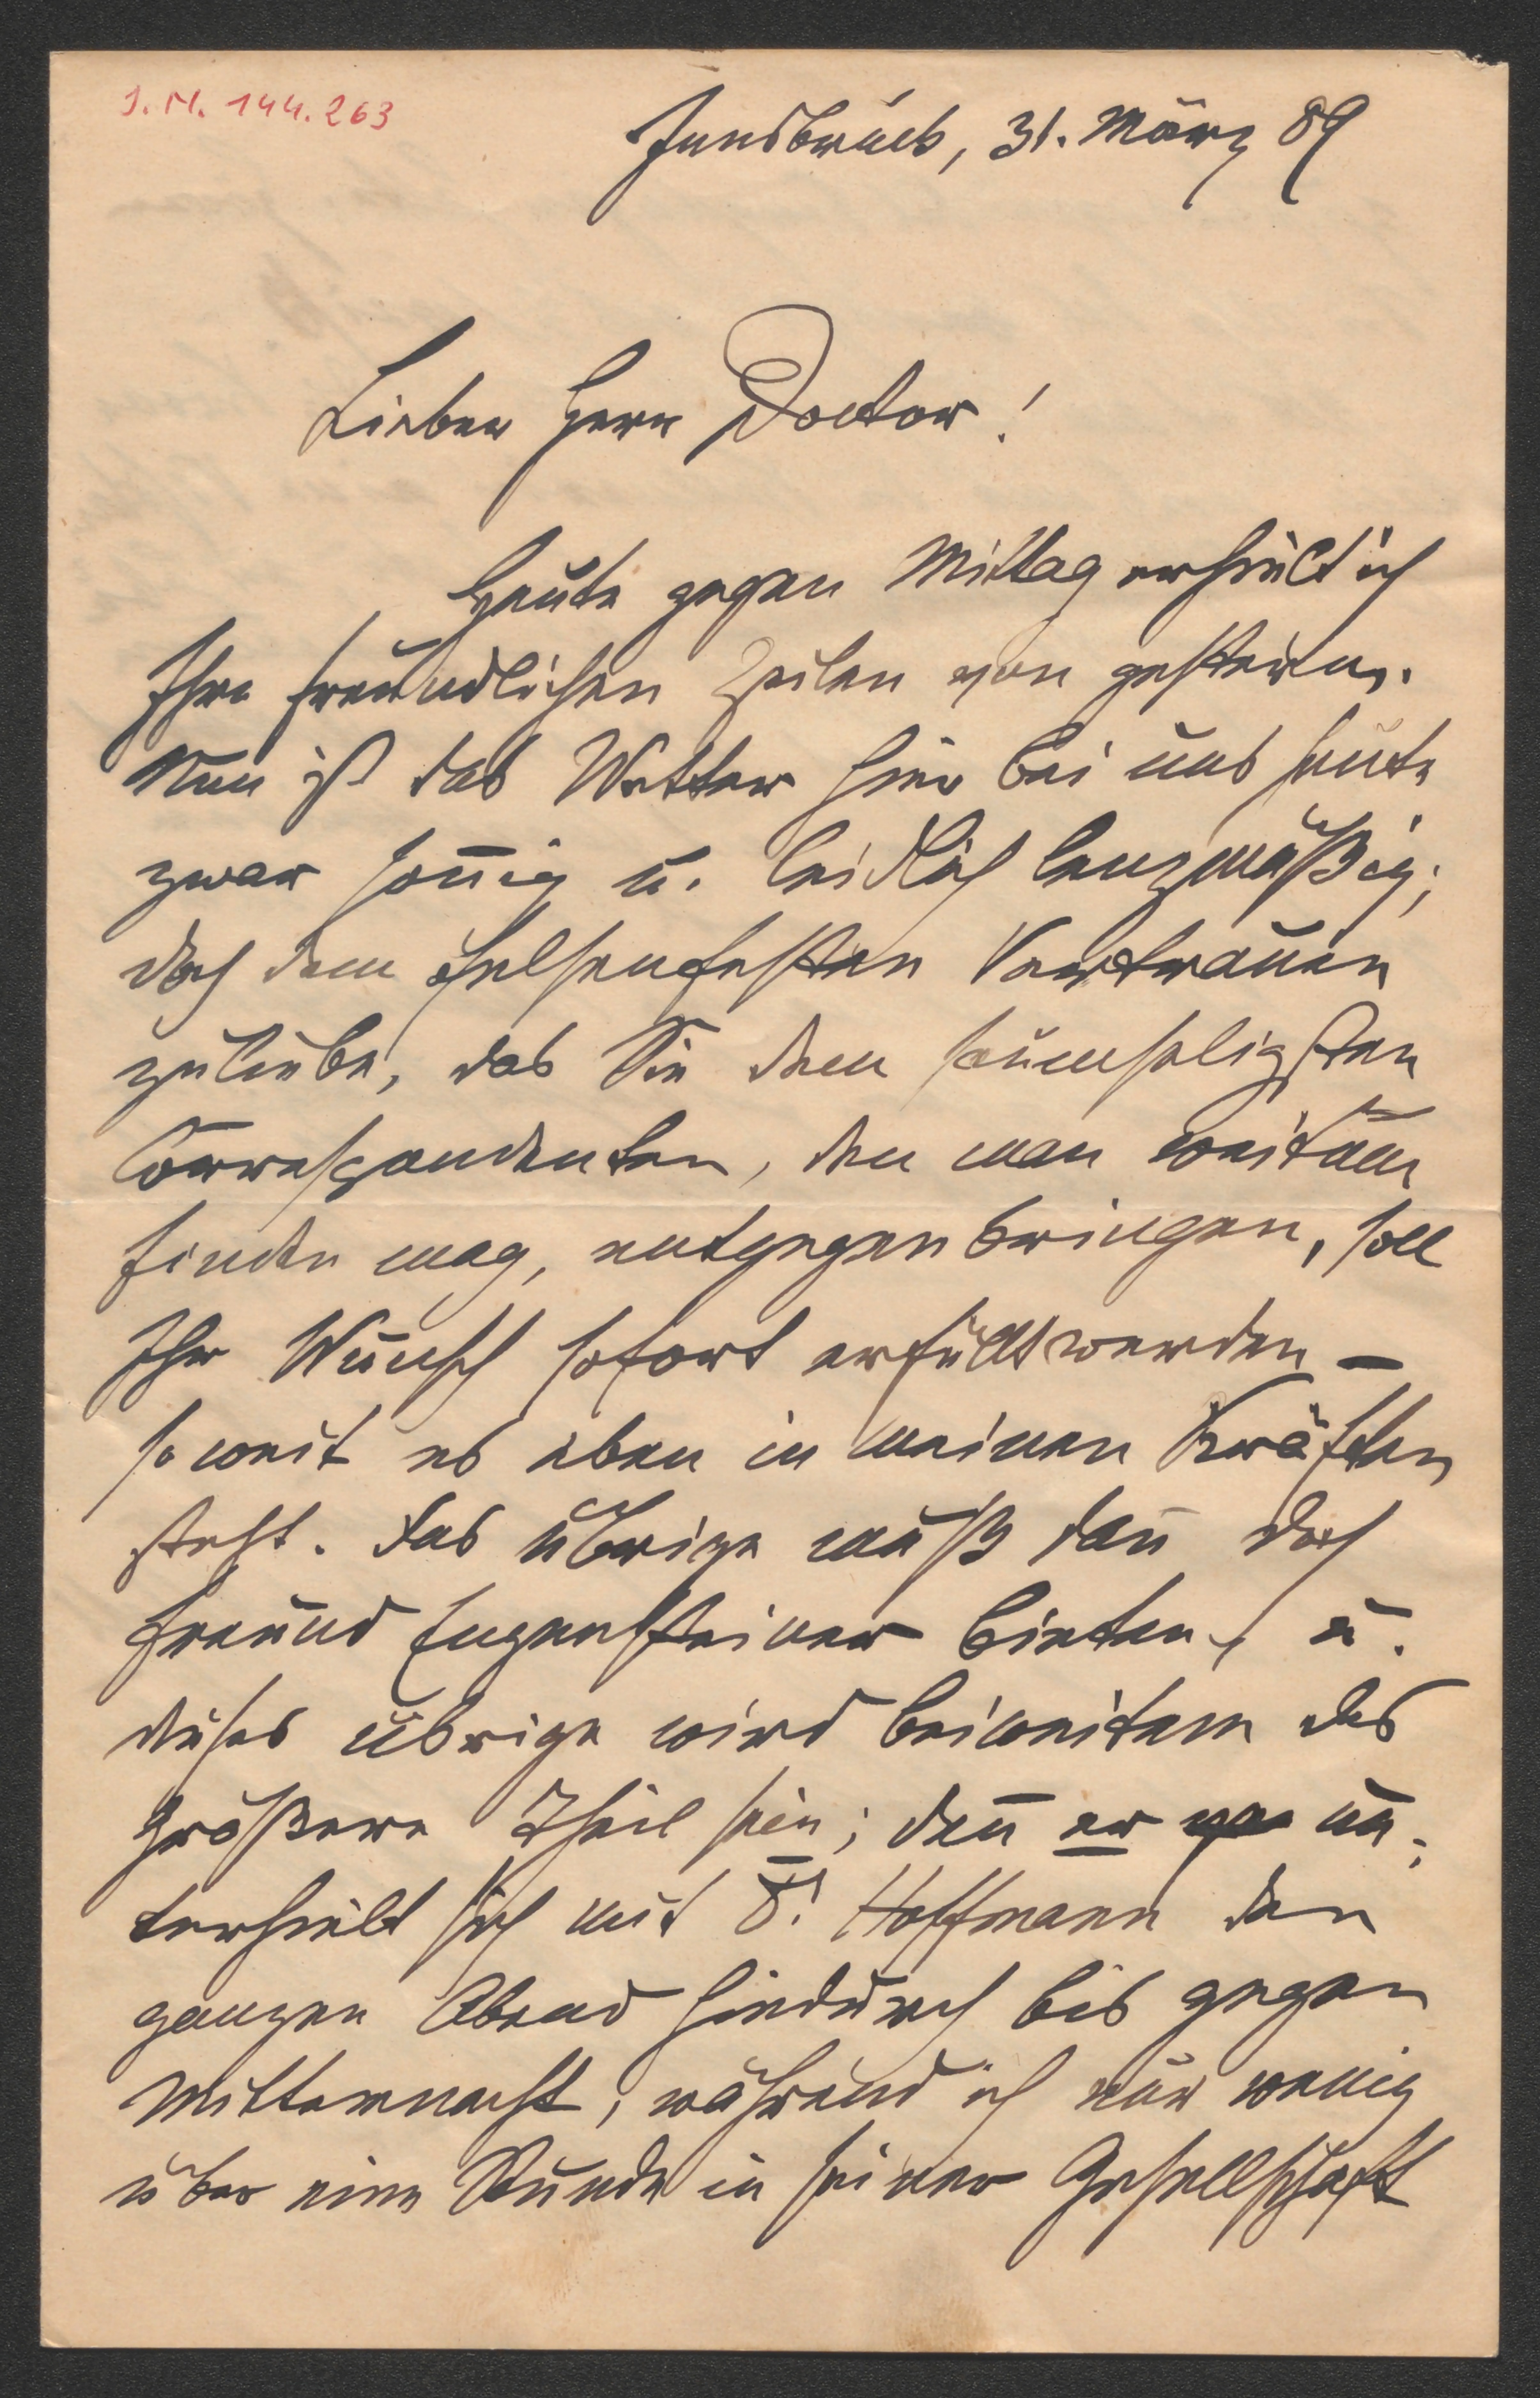 I. N. 144.263
Innsbruck, 31. März 89
Lieber Herr Doctor!
Heute gegen Mittag erhielt ich
Ihre freundlichen Zeilen von gestern.
Nun ist das Wetter hier bei uns heute
zwar son̄ig u. leidlich lenzmäßig;
doch dem felsenfesten Vertrauen
zuliebe, das Sie dem saumseligsten
Correspondenten, den man weitum
finden mag, entgegenbringen, soll
Ihr Wunsch sofort erfüllt werden –
soweit es eben in meinen Kräften
steht. Das übrige muß dan̄ doch
Freund bieten, u.
dieses übrige wird beiweitem das
größere Theil sein; den̄ er un-
terhielt sich mit D! Hoffmann den
ganzen Abend hindurch bis gegen
Mitternacht, während ich nur wenig
über eine Stunde in seiner Gesellschaft